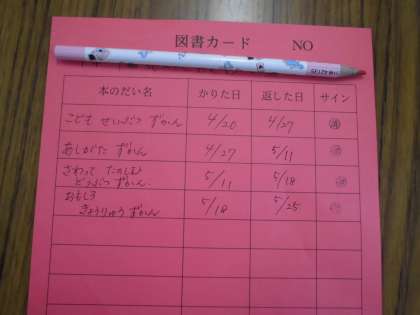 図書カード NO
本のだい名 かりた日 返した日 サイン
こども せいぶつ ずかん 4/20 4/27
あしがた ずかん 4/27 5/11
さわって たのしむ
どうぶつ ずかん 5/11 5/18
おもしろ
きょうりゅう ずかん 5/18 5/25